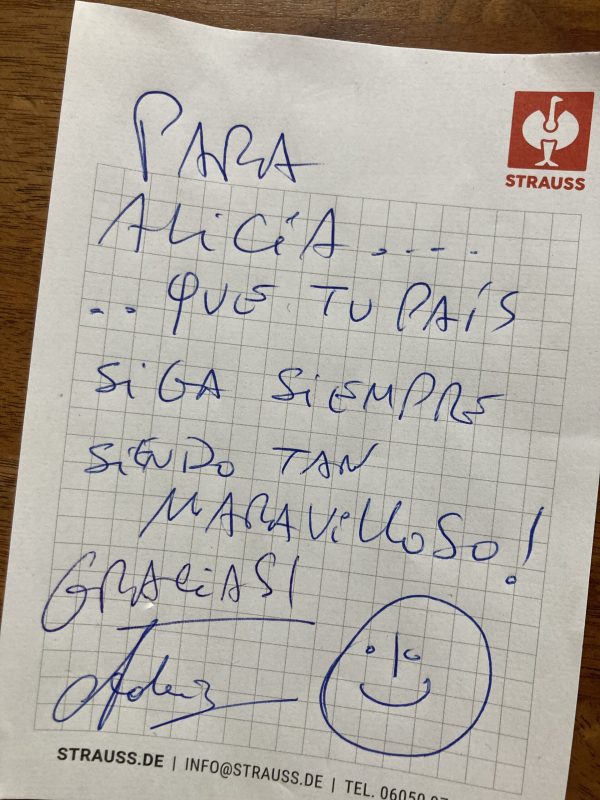 STRAUSS
PARA
ALICIA ....
.. QUE TU PAÍS
SIGA SIEMPRE
SIENDO TAN
MARAVILLOSO!
GRACIAS!
STRAUSS.DE | INFO@STRAUSS.DE | TEL. 06050 97